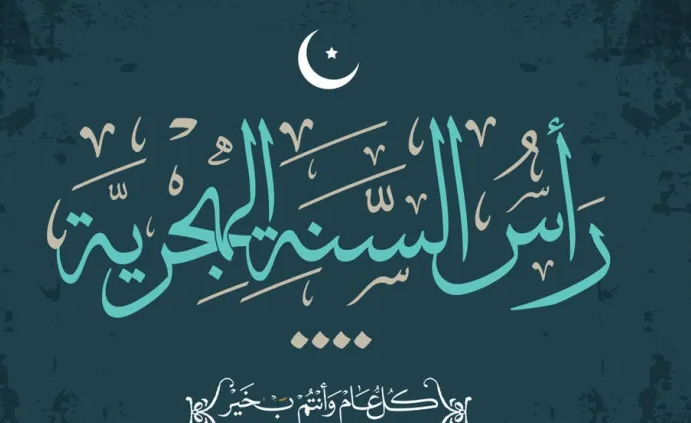 رأس السنة الهجرية
كل عام وأنتم بخير